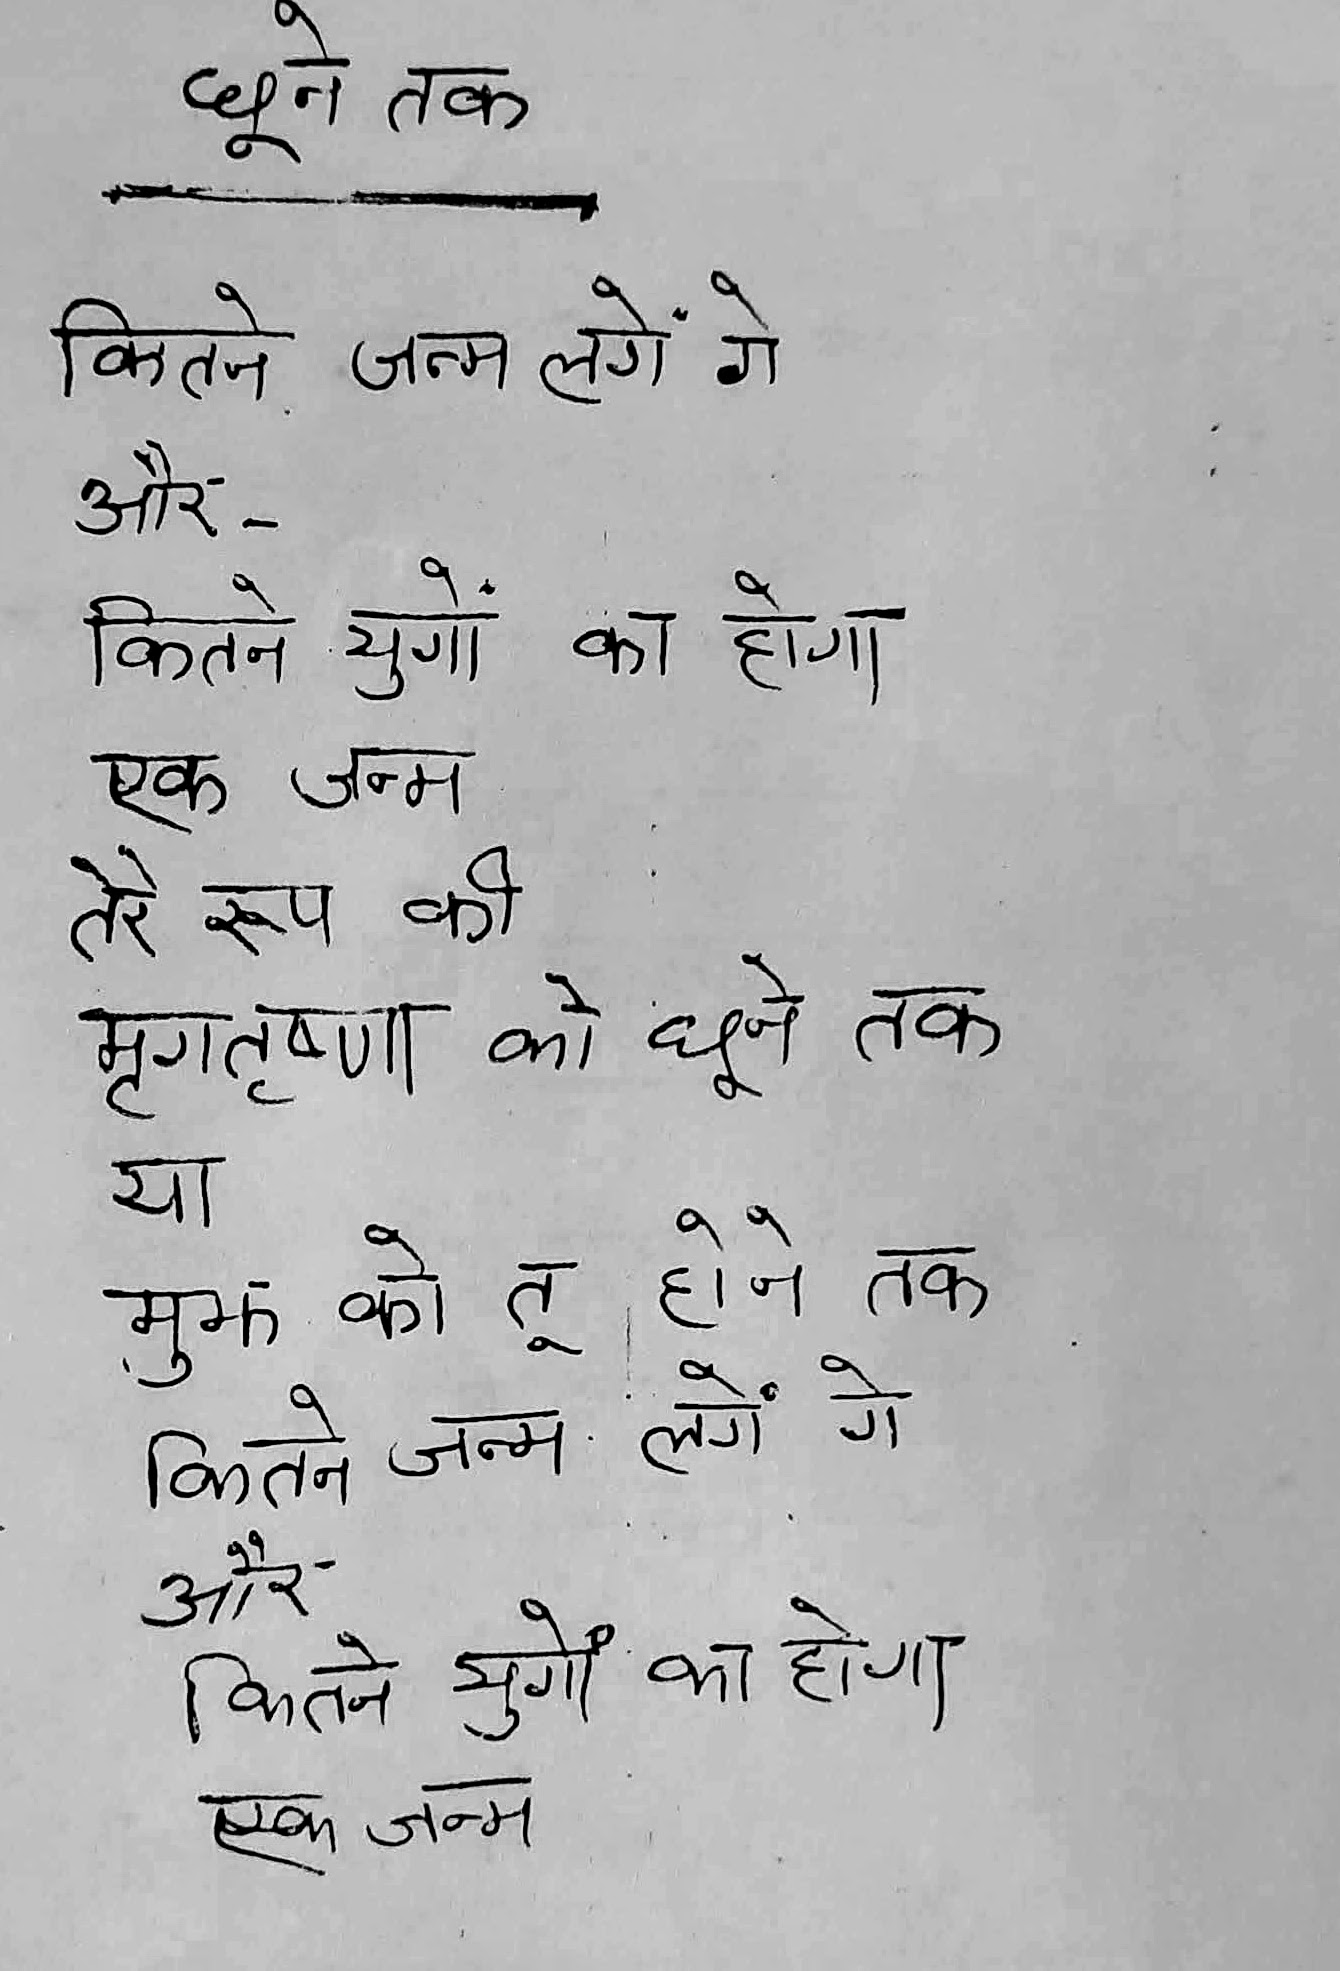 छूने तक
कितने जन्म लगें गे
और -
कितने युगों का होगा
एक जन्म
तेरे रूप की
मृगतृष्णा को छूने तक
या
मुझ को तू होने तक
कितने जन्म लगें गे
और
कितने युगों का होगा
एक जन्म